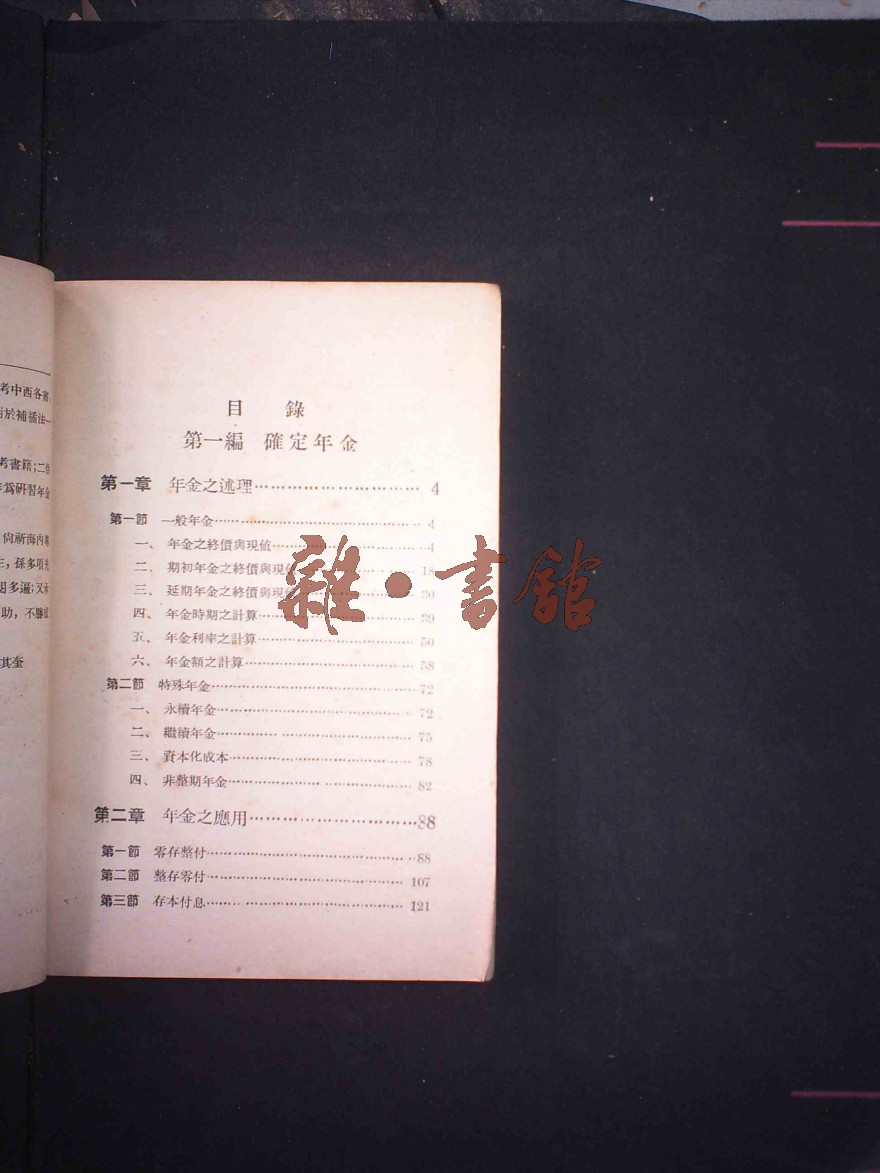 考中西各書,
於補插法一
考書籍;二
爲研習年金
尙祈海內專
孫多項
多遍;又
助,不
其奎
目 錄
第一編 確定年金
第一章 年金之述理………………………… 4
第一節 一般年金………………………… 4
一、 年金之終價與現值………………………… 4
二、 期初年金之終價與現值………………………… 18
三、 延期年金之終價與現值………………………… 30
四、 年金時期之計算………………………… 39
五、 年金利率之計算………………………… 50
六、 年金額之計算………………………… 58
第二節 特殊年金………………………… 72
一、 永續年金………………………… 72
二、 繼續年金………………………… 75
三、 資本化成本………………………… 78
四、 非整期年金………………………… 82
第二章 年金之應用………………………… 88
第一節 零存整付………………………… 88
第二節 整存零付………………………… 107
第三節 存本付息………………………… 121
雜·書館